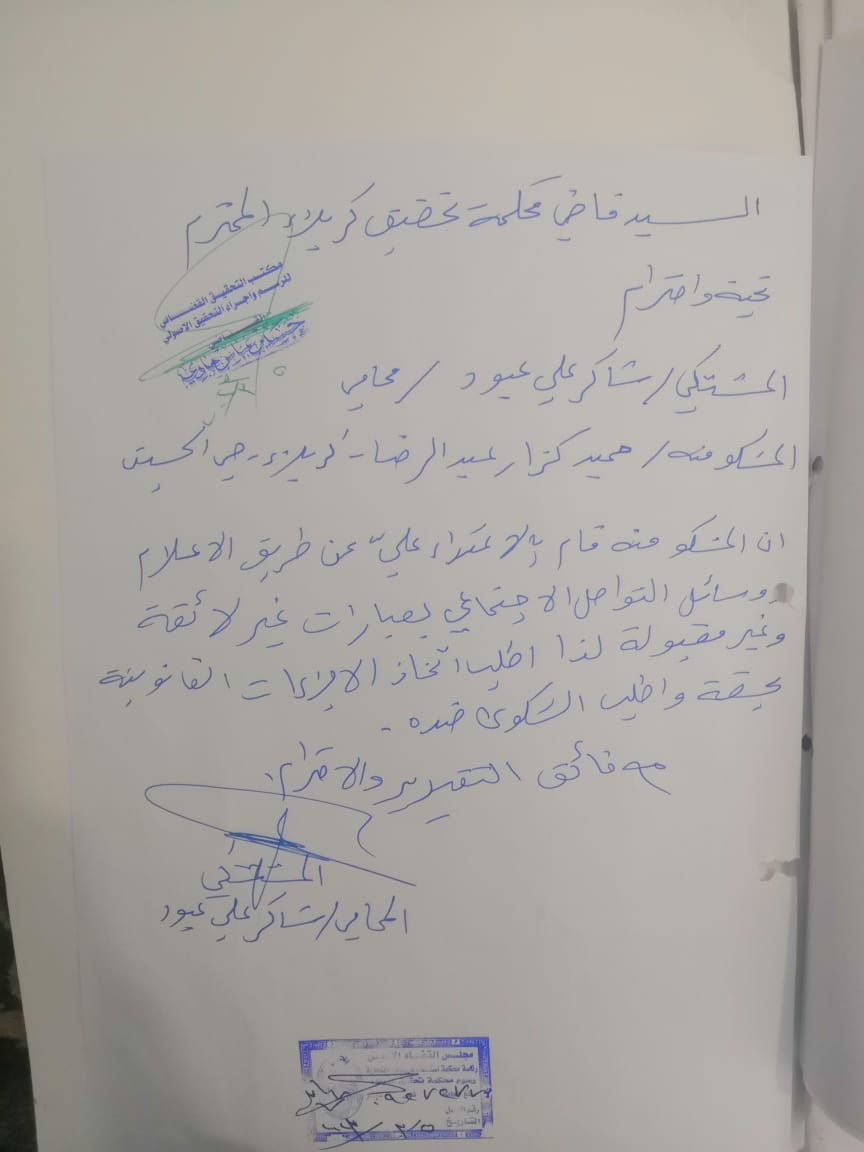 السيد قاضي محكمة تحقيق كربلاء المحترم
مكتب التحقيق القضائي
للرسم واجراء التحقيق الاصولي
القاضي
تحية واحترام
المشتكي / شاكر علي عبود / محامي
المشكو منه / حميد كزار عبد الرضا - كربلاء - حي الحسين
ان المشكو منه قام بالاعتداء عليّ عن طريق الاعلام
وسائل التواصل الاجتماعي بعبارات غير لائقة
وغير مقبولة لذا اطلب اتخاذ الاجراءات القانونية
بحقه واطلب الشكوى ضده .
مع فائق التقدير والاحترام .
المشتكي
المحامي / شاكر علي عبود
مجلس القضاء الاعلى
رئاسة محكمة
رسوم محكمة
التاريخ